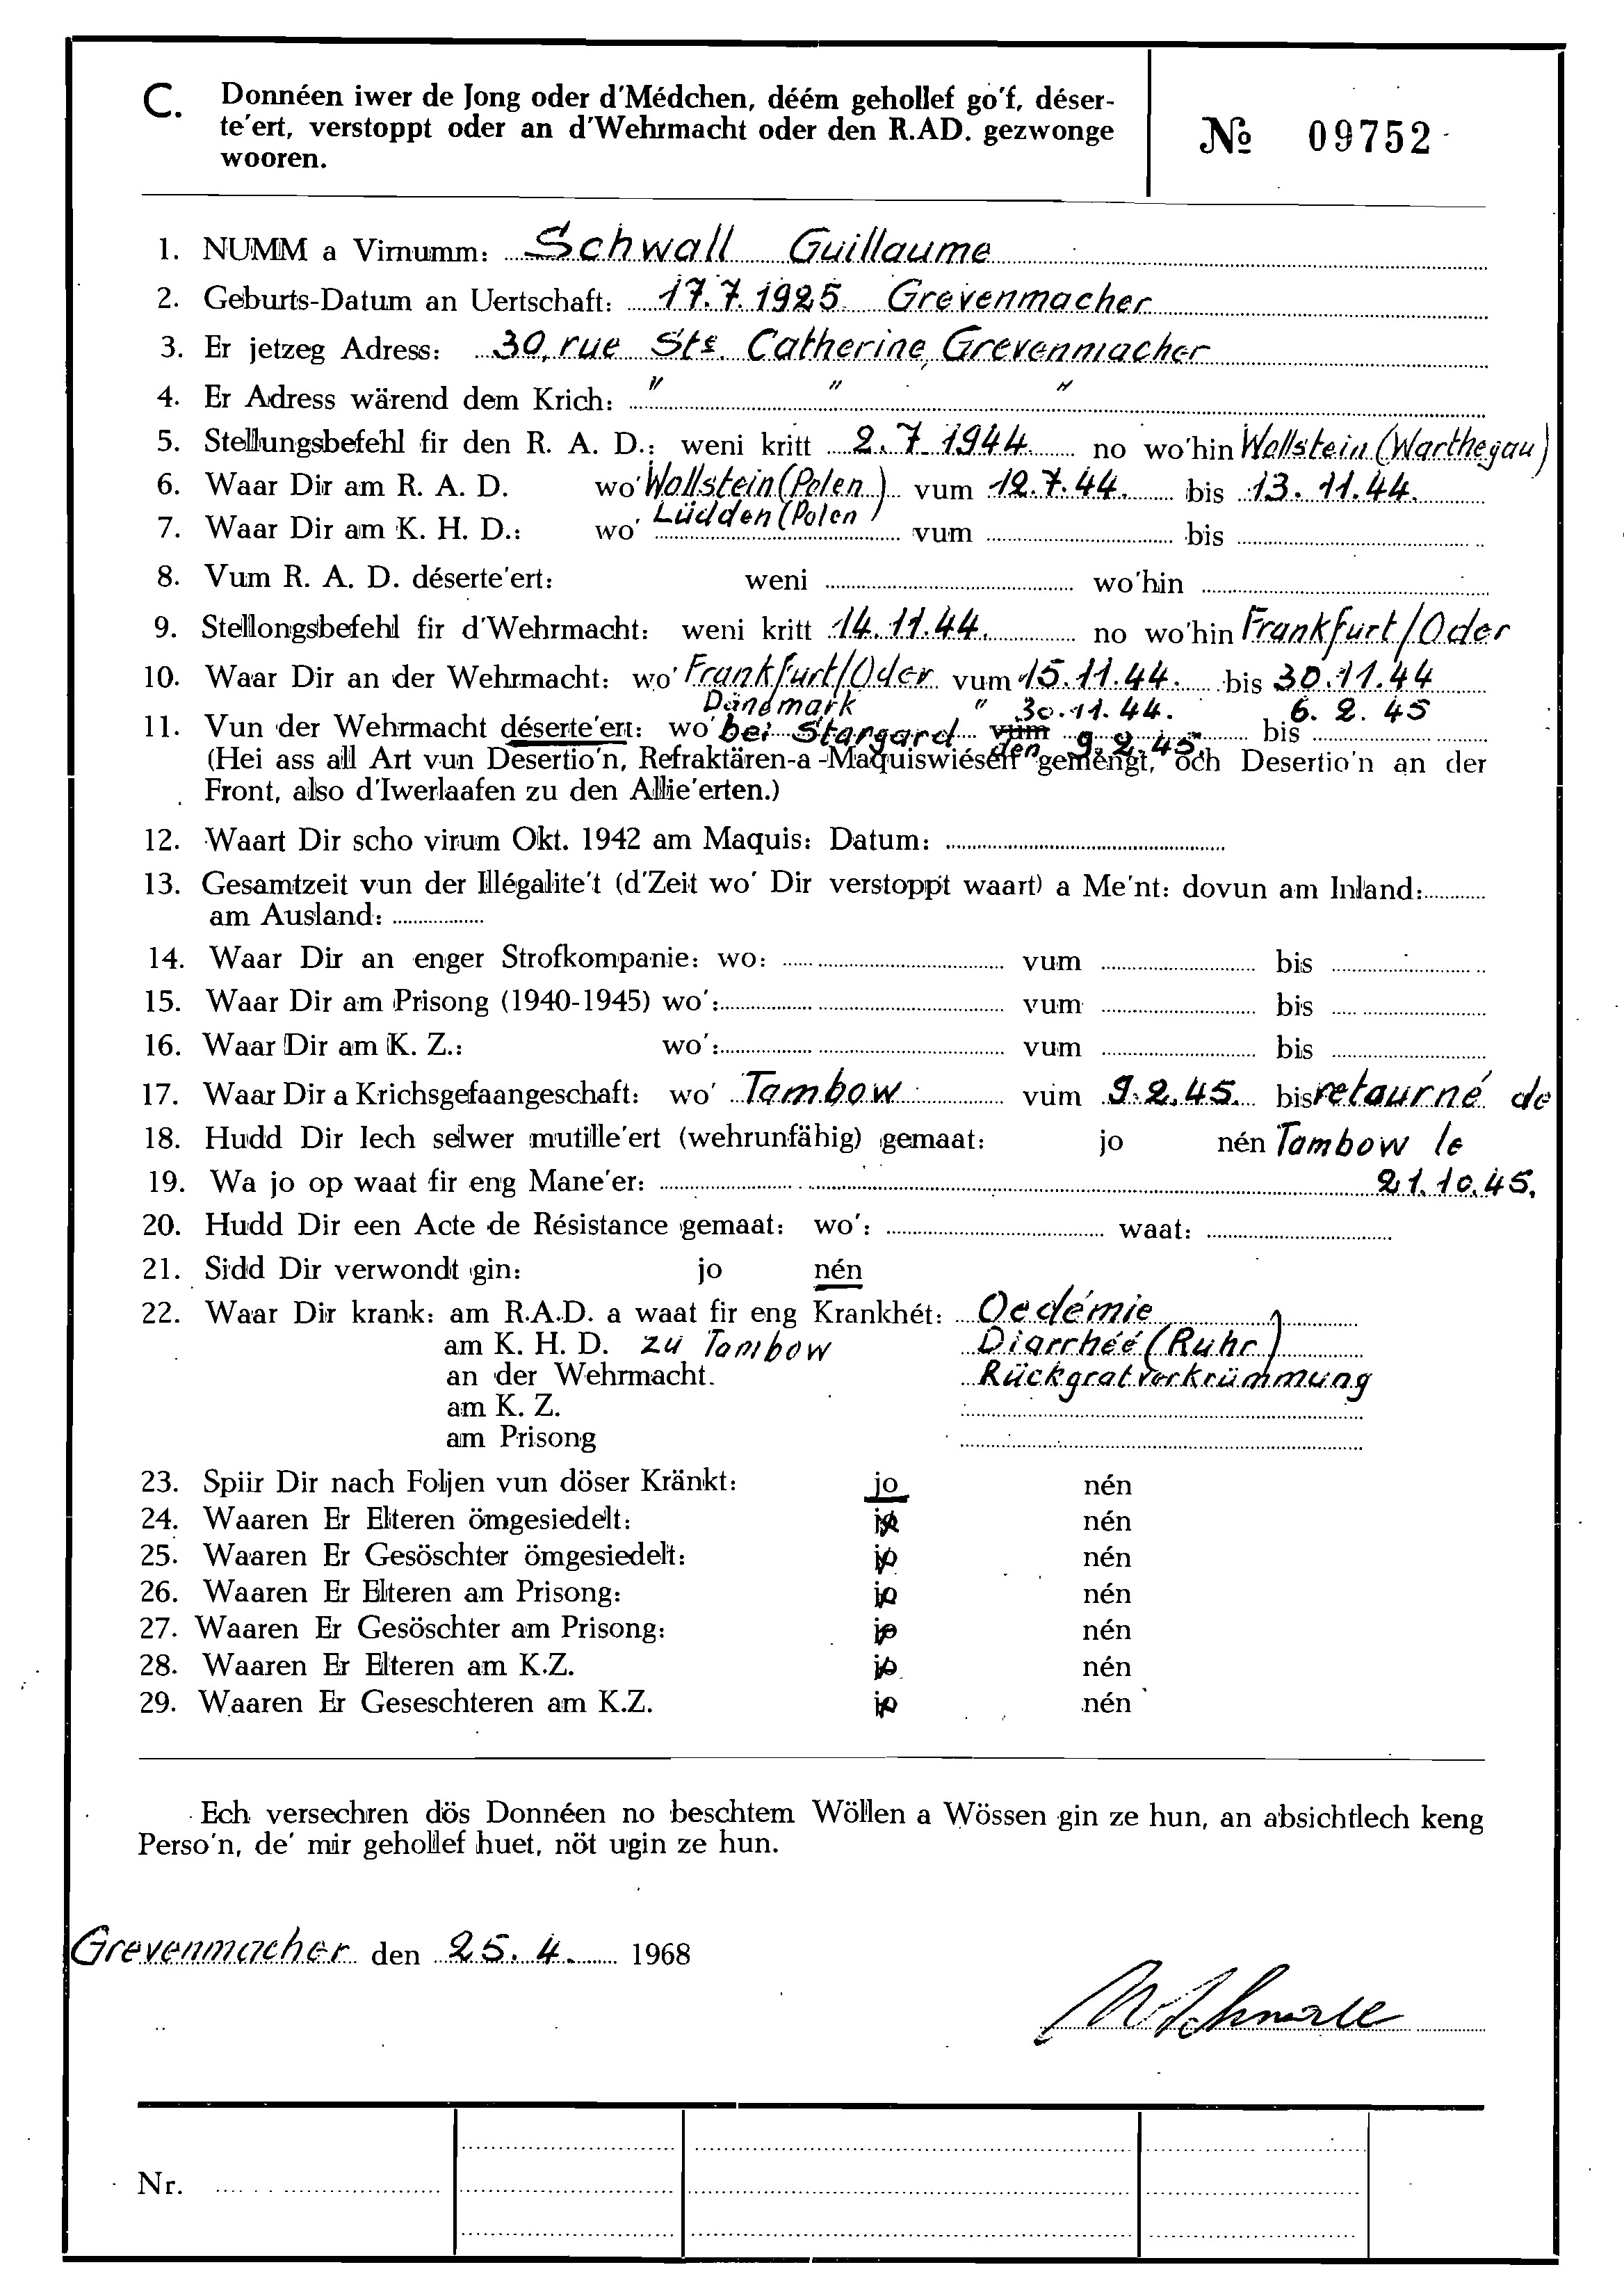 C. Donnéen iwer de Jong oder d'Médchen, déém gehollef go'f, déser-
te'ert, verstoppt oder an d'Wehrmacht oder den R.AD. gezwonge
wooren.
№ 09752
1. NUMM a Virnumm: Schwall Guillaume
2. Geburts-Datum an Uertschaft: 17.7.1925 Grevenmacher
3. Er jetzeg Adress: 30, rue Ste. Catherine, Grevenmacher
4. Er Adress wärend dem Krich: " " "
5. Stellungsbefehl fir den R. A. D.: weni kritt 2.7.1944 no wo'hin Wollstein (Warthegau)
6. Waar Dir am R. A. D. wo' Wollstein (Polen) vum 12.7.44. bis 13.11.44.
Lüdden (Polen)
7. Waar Dir am K. H. D.: wo' vum bis
8. Vum R. A. D. déserte'ert: weni wo'hin
9. Stellongsbefehl fir d'Wehrmacht: weni kritt 14.11.44. no wo'hin Frankfurt/Oder
10. Waar Dir an der Wehrmacht: wo' Frankfurt/Oder vum 15.11.44. bis 30.11.44
Dänemark " 30.11.44. 6.2.45
11. Vun der Wehrmacht déserte'ert: wo' bei Stargard vum den 9.2.45. bis
(Hei ass all Art vun Desertio'n, Refraktären-a -Maquiswiésen gemengt, och Desertio'n an der
Front, also d'Iwerlaafen zu den Allie'erten.)
12. Waart Dir scho virum Okt. 1942 am Maquis: Datum:
13. Gesamtzeit vun der Illégalite't (d'Zeit wo' Dir verstoppt waart) a Me'nt: dovun am Inland:
am Ausland:
14. Waar Dir an enger Strofkompanie: wo: vum bis
15. Waar Dir am Prisong (1940-1945) wo': vum bis
16. Waar Dir am K. Z.: wo': vum bis
17. Waar Dir a Krichsgefaangeschaft: wo' Tambow vum 9.2.45. bis retourné de
18. Hudd Dir Iech selwer mutille'ert (wehrunfähig) gemaat: jo nén Tambow le
19. Wa jo op waat fir eng Mane'er: 21.10.45.
20. Hudd Dir een Acte de Résistance gemaat: wo': waat:
21. Sidd Dir verwondt gin: jo nén
22. Waar Dir krank: am R.A.D. a waat fir eng Krankhét: Oedémie
am K. H. D. zu Tambow Diarrhéé (Ruhr)
an der Wehrmacht. Rückgratverkrümmung
am K. Z.
am Prisong
23. Spiir Dir nach Foljen vun döser Kränkt: jo nén
24. Waaren Er Elteren ömgesiedelt: jo nén
25. Waaren Er Gesöschter ömgesiedelt: jo nén
26. Waaren Er Elteren am Prisong: jo nén
27. Waaren Er Gesöschter am Prisong: jo nén
28. Waaren Er Elteren am K.Z. jo nén
29. Waaren Er Geseschteren am K.Z. jo nén
Ech versechren dös Donnéen no beschtem Wöllen a Wössen gin ze hun, an absichtlech keng
Perso'n, de' mir gehollef huet, nöt ugin ze hun.
Grevenmacher den 25.4. 1968
Nr.